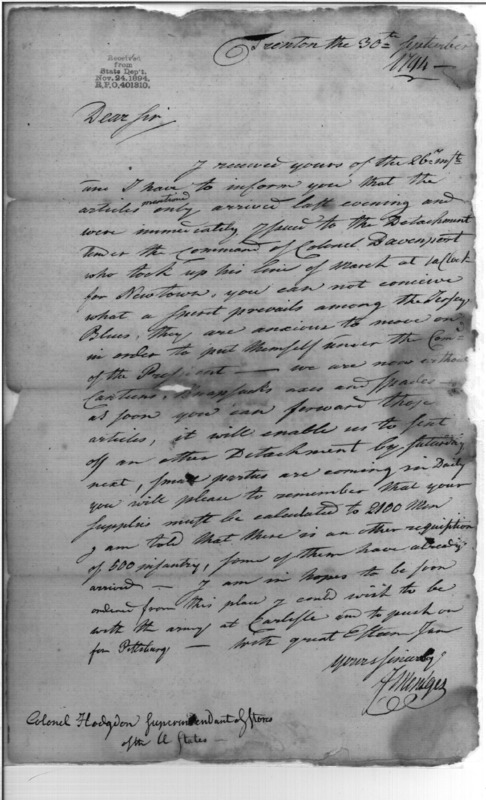 Received
from
State Dep't.
Nov. 24. 1894.
R.P.O. 401310.
Trenton the 30th September
1794 —
Dear Sir,
I received yours of the 26th inst
and I have to inform you that the
articles mentioned only arrived last evening and
were immediately Issued to the Detachment
under the Command of Colonel Davenport
who took up his line of March at 1 a Clock
for Newtown, you can not conceive
what a spirit prevails among the Jersey
Blues, they are anxious to move on
in order to put themself under the Comd
of the President — we are now without
Canteens, Knapsacks axes and Spades —
as soon you can forward those
articles, it will enable us to sent
off an other Detachment by saturday
next, small parties are coming in Daily
you will please to remember that your
supplies must be calculated to 2100 Men
I am told that there is an other requisition
of 500 infantry, some of them have already
arrived — I am in hopes to be soon
ordered from this place I could wish to be
with the army at Carlisle and to push on
for Pittsburg — with great Esteem I am
yours sincerely
J Mentges
Colonel Hodgdon Superintendant of Stores
of the U States —